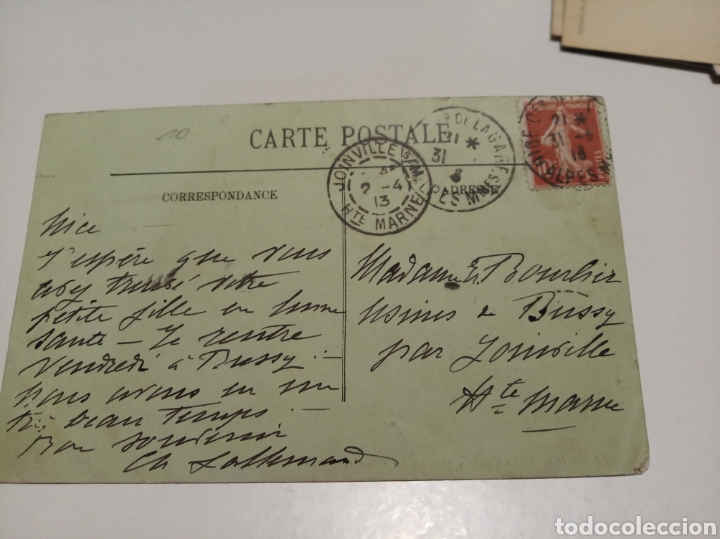 10
CARTE POSTALE
CORRESPONDANCE
ADRESSE
JOINVILLE S/M.
2 -4
13
HTE MARNE
DE LA GARE
21 *
31
21 *
13
ALPES M
Nice
J'espère que vous
avez trouvé votre
petite fille en bonne
santé - Je rentre
Vendredi à Bussy -
Nous avons eu un
très beau temps -
Bon souvenir
Ch Lallemand
Madame Bourlier
Usines de Bussy
par Joinville
Hte Marne
todocoleccion